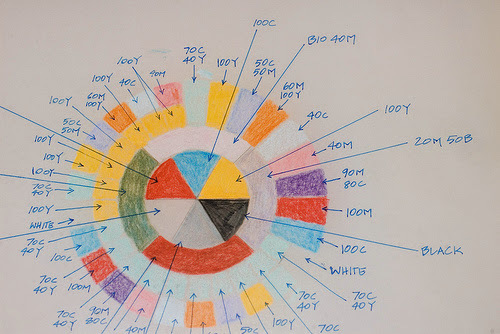 100C
BIO 40M
70C
40Y
100Y
50C
50M
100Y
90M
40C
60M
100Y
100Y
60M
100Y
40C
100Y
100Y
50C
50M
40M
20M 50B
100Y
100Y
90M
80C
100Y
70C
40Y
100M
100Y
WHITE
100C
BLACK
70C
40Y
WHITE
100C
70C
40Y
70C
40Y
70C
40Y
90M
80C
70C
40Y
40M
50C
100Y
70C